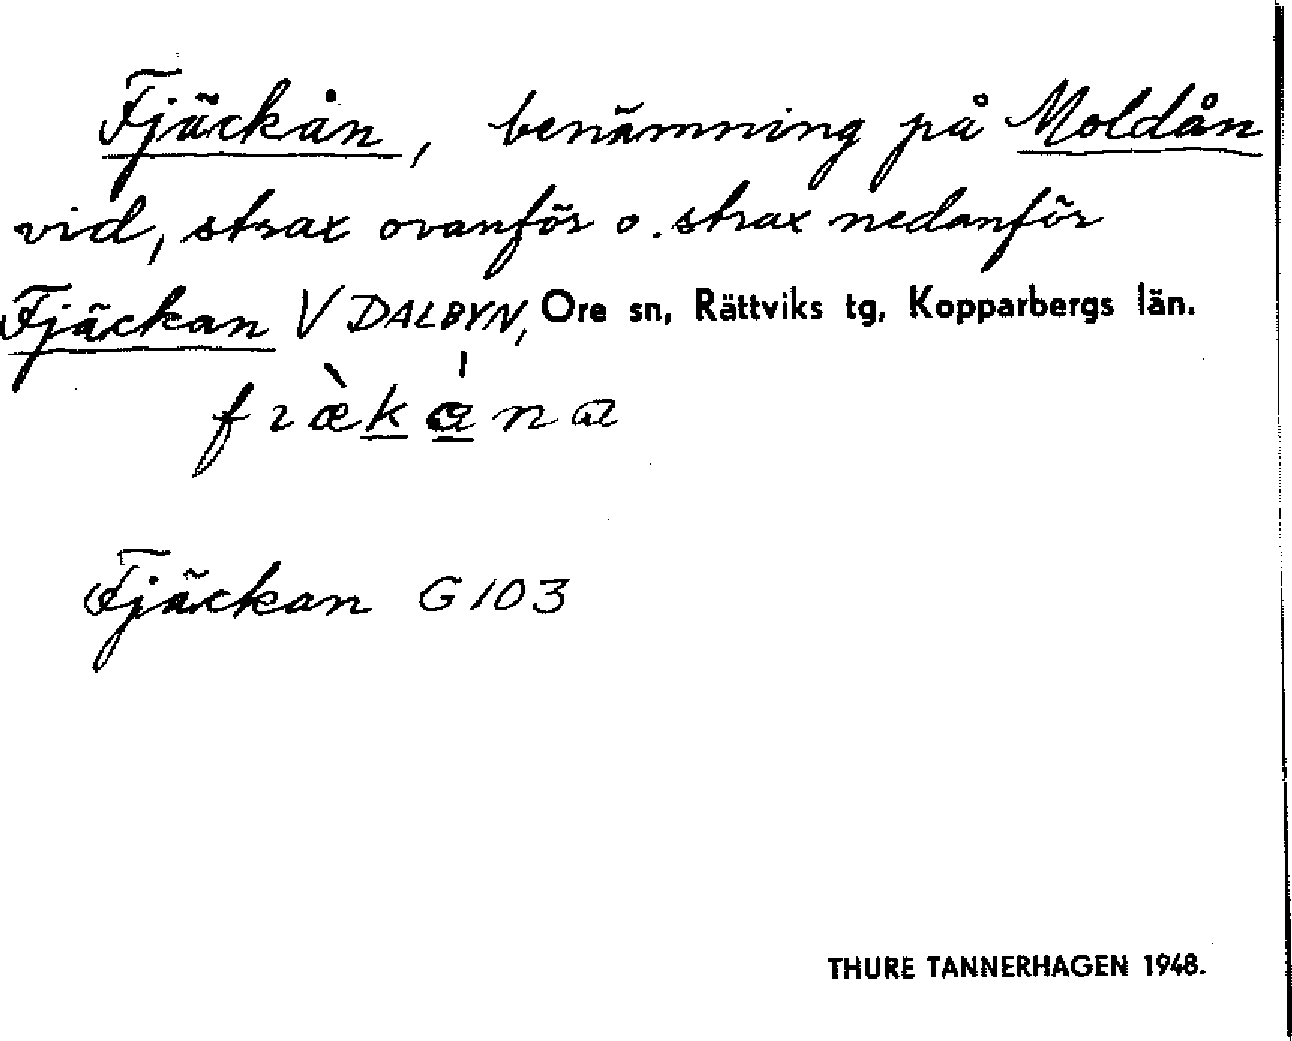 Fjäckån, benämning på Moldån
vid, strax ovanför o. strax nedanför
Fjäckan V DALBYN, Ore sn, Rättviks tg, Kopparbergs län.
Fjäckan G 103
THURE TANNERHAGEN 1948.